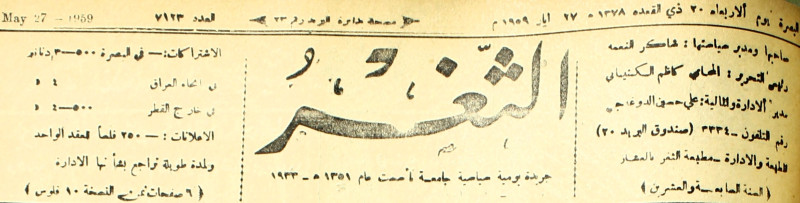 البصرة يوم الاربعاء ٢٠ ذي القعده ١٣٧٨ هـ ٢٧ ايار ١٩٥٩ م
العدد ٧١٢٣
May 27 - 1959
صاحبها ومدير سياستها : شاكر النعمه
رئيس التحرير : المحامي كاظم
مدير الادارة والمالية : علي حسين
رقم التلفون ـ ٣٣٣٤ (صندوق البريد ٢٠)
للطبعة والادارة ـ مطبعة الثغر بالعشار
( السنة السابعة والعشرين )
الثغر
جريدة يومية سياسية جامعة تأسست عام ١٣٥١ هـ - ١٩٣٣
الاشتراكات : ـ في البصرة ٥٠٠ـ٣ دنانير
في انحاء العراق ٤ د
في خارج القطر ٥٠٠ـ٤ د
الاعلانات : ـ ٢٥٠ فلساً للعقد الواحد
ولمدة طويلة تراجع بشأنها الادارة
( ٦ صفحات ثمن النسخة ١٠ فلوس )